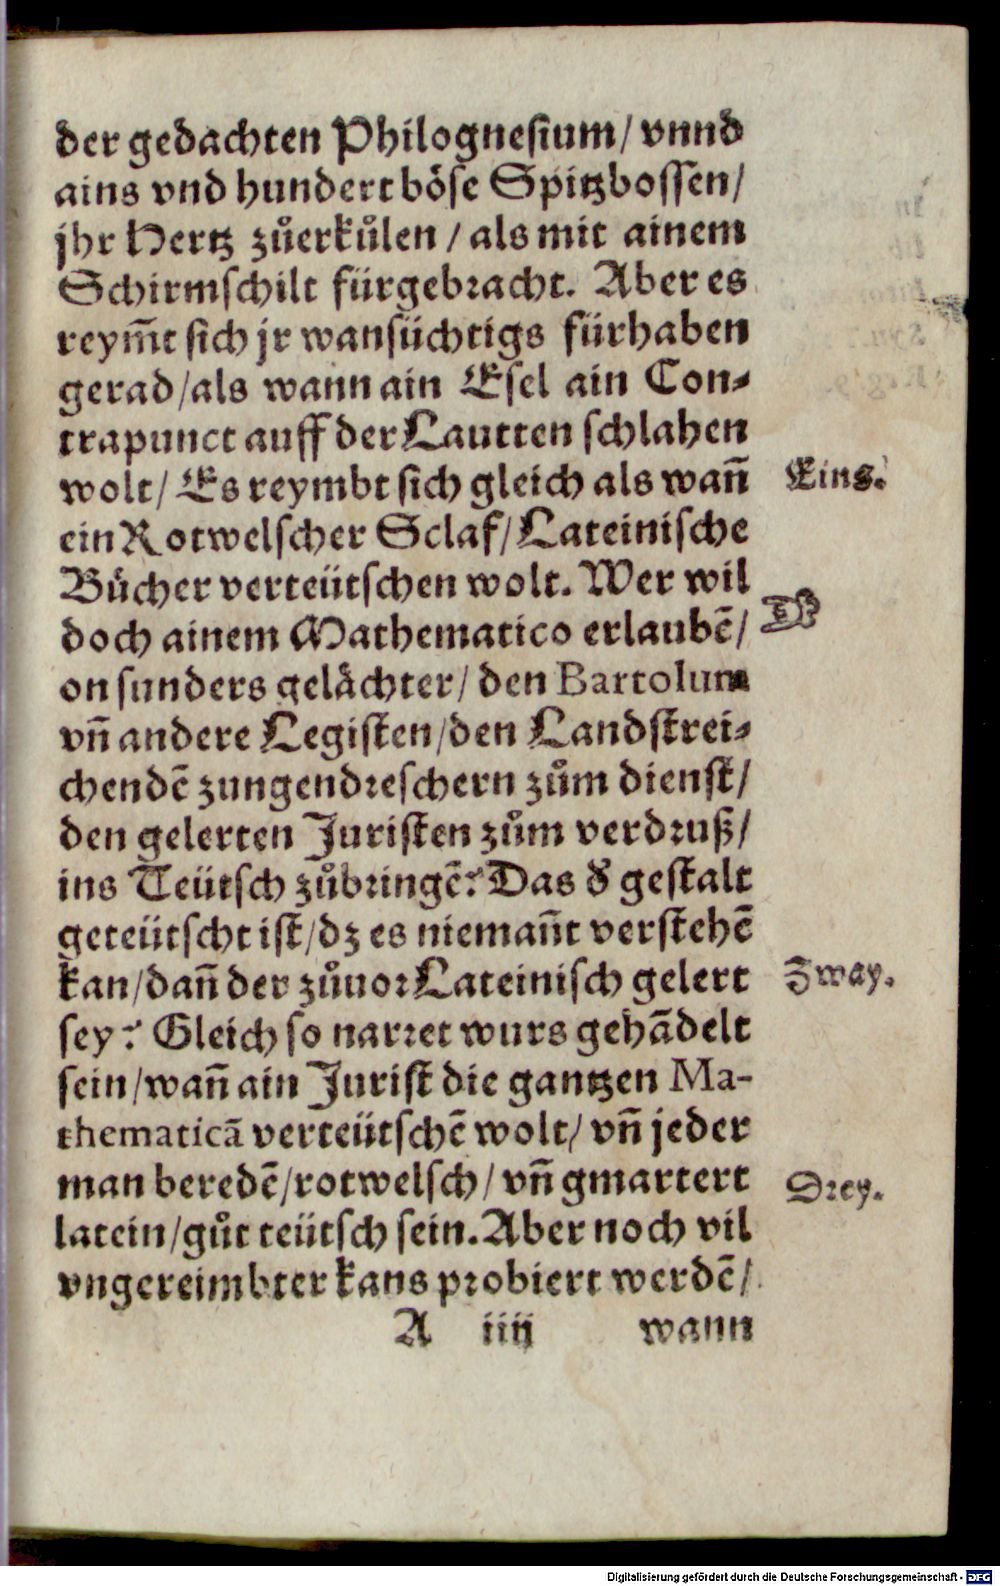 der gedachten Philognesium/ vnnd
ains vnd hundert böse Spitzbossen/
jhr Hertz zůerkůlen / als mit ainem
Schirmschilt fürgebracht. Aber es
reym̃t sich jr wansüchtigs fürhaben
gerad/als wann ain Esel ain Con⸗
trapunct auff der Lautten schlahen
wolt/ Es reymbt sich gleich als wañ
Eins.
ein Rotwelscher Sclaf/ Lateinische
Bücher verteütschen wolt. Wer wil
doch ainem Mathematico erlaubẽ/
☞
on sunders gelächter/ den Bartolum
vñ andere Legisten/den Landstrei⸗
chendẽ zungendreschern zům dienst/
den gelerten Juristen zům verdruß/
ins Teütsch zůbringẽ? Das d' gestalt
geteütscht ist/dz es niemañt verstehẽ
kan/dañ der zůuor Lateinisch gelert
Zway.
sey? Gleich so narret wurs gehãdelt
sein/wañ ain Jurist die gantzen Ma-
thematicã verteütschẽ wolt/ vñ jeder
man beredẽ/rotwelsch/ vñ gmartert
Drey.
latein/gůt teütsch sein. Aber noch vil
vngereimbter kans probiert werdẽ/
A iiij wann
Digitalisierung gefördert durch die Deutsche Forschungsgemeinschaft - DFG